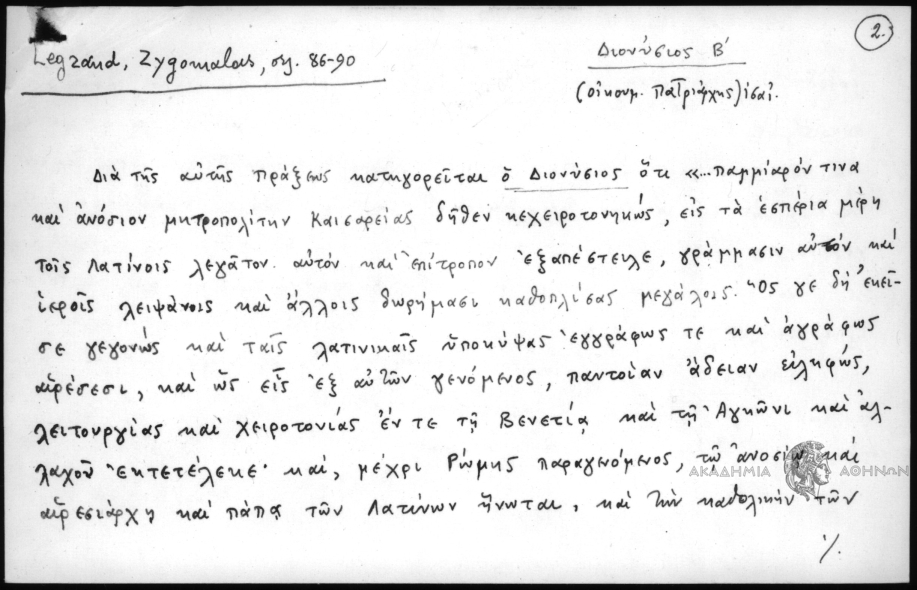 2.
Legrand, Zygomalas, σελ. 86-90
Διονύσιος Β'
(οἰκουμ. Πατριάρχης)
Διὰ τῆς αὐτῆς πράξεως κατηγορεῖται ὁ Διονύσιος ὅτι «...παμμίαρόν τινα
καὶ ἀνόσιον μητροπολίτην Καισαρείας δῆθεν κεχειροτονηκώς, εἰς τὰ ἑσπέρια μέρη
τοῖς Λατίνοις λεγᾶτον αὐτὸν καὶ ἐπίτροπον ἐξαπέστειλε, γράμμασιν αὐτὸν καὶ
ἱεροῖς λειψάνοις καὶ ἄλλοις δωρήμασι καθοπλίσας μεγάλοις. Ὅς γε δὴ ἐκεῖ-
σε γεγονὼς καὶ ταῖς λατινικαῖς ὑποκύψας ἐγγράφως τε καὶ ἀγράφως
αἱρέσεσι, καὶ ὡς εἷς ἐξ αὐτῶν γενόμενος, παντοίαν ἄδειαν εἰληφώς,
λειτουργίας καὶ χειροτονίας ἔν τε τῇ Βενετίᾳ καὶ τῇ Ἀγκῶνι καὶ ἀλ-
λαχοῦ ἐκτετέλεκε· καί, μέχρι Ῥώμης παραγενόμενος, τῷ ἀνοσίῳ καὶ
αἱρεσιάρχῃ καὶ πάπᾳ τῶν Λατίνων ἥνωται, καὶ τὴν καθολικὴν τῶν
./.
ΑΚΑΔΗΜΙΑ ΑΘΗΝΩΝ